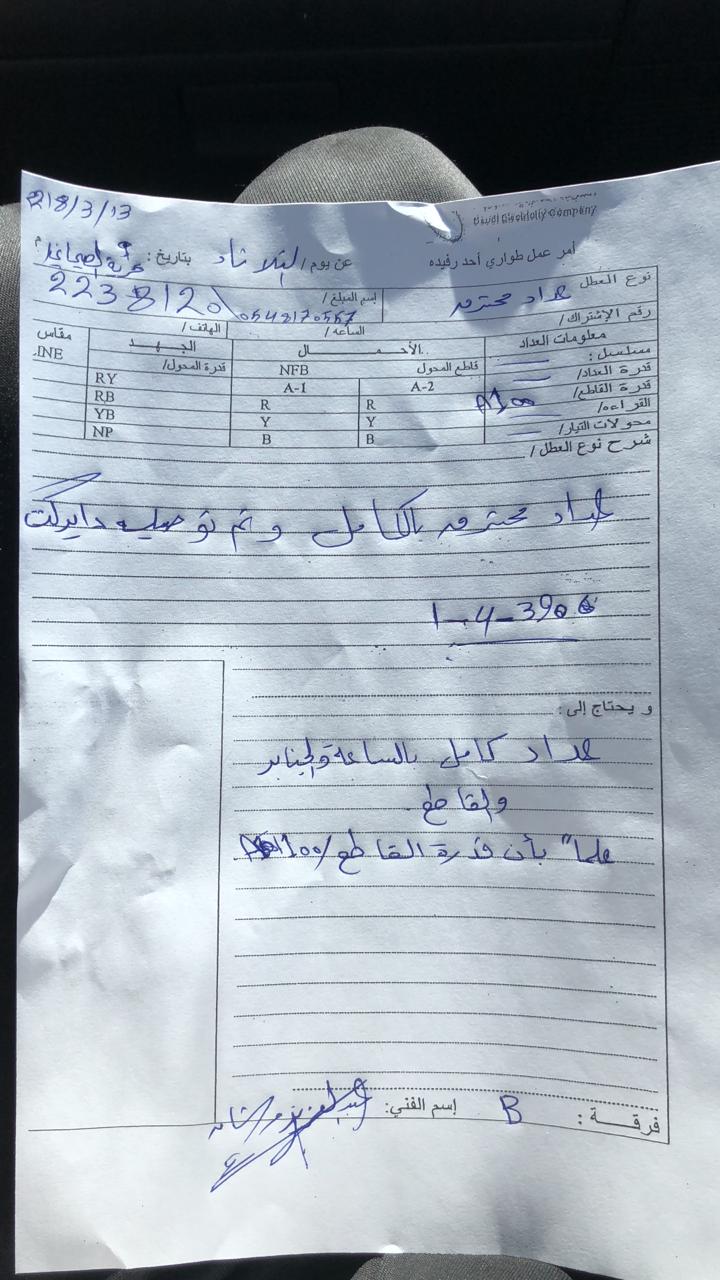 218/3/13
Saudi Electricity Company
أمر عمل طواري أحد رفيده عن يوم / الثلاثاء بتاريخ :
نوع العطل عداد محترق إسم المبلغ / 0548170557 2238120
رقم الإشتراك / الساعه / الهاتف /
معلومات العداد الأحمـــال الجهــد مقاس
مسلسل : قاطع المحول NFB قدرة المحول/ LINE.
قدرة العداد/ A-2 A-1 RY
قدرة القاطع/ A100 R R RB
القراءه/ Y Y YB
محولات التيار/ B B NP
شرح نوع العطل /
عداد محترق بالكامل وتم توصليه دايركت
1-4-390
ويحتاج إلى :
عداد كامل بالساعة والجنابر
والقاطع
علما" بأن قدرة القاطع/100
فرقــة : B إسم الفني: عبدالعزيز